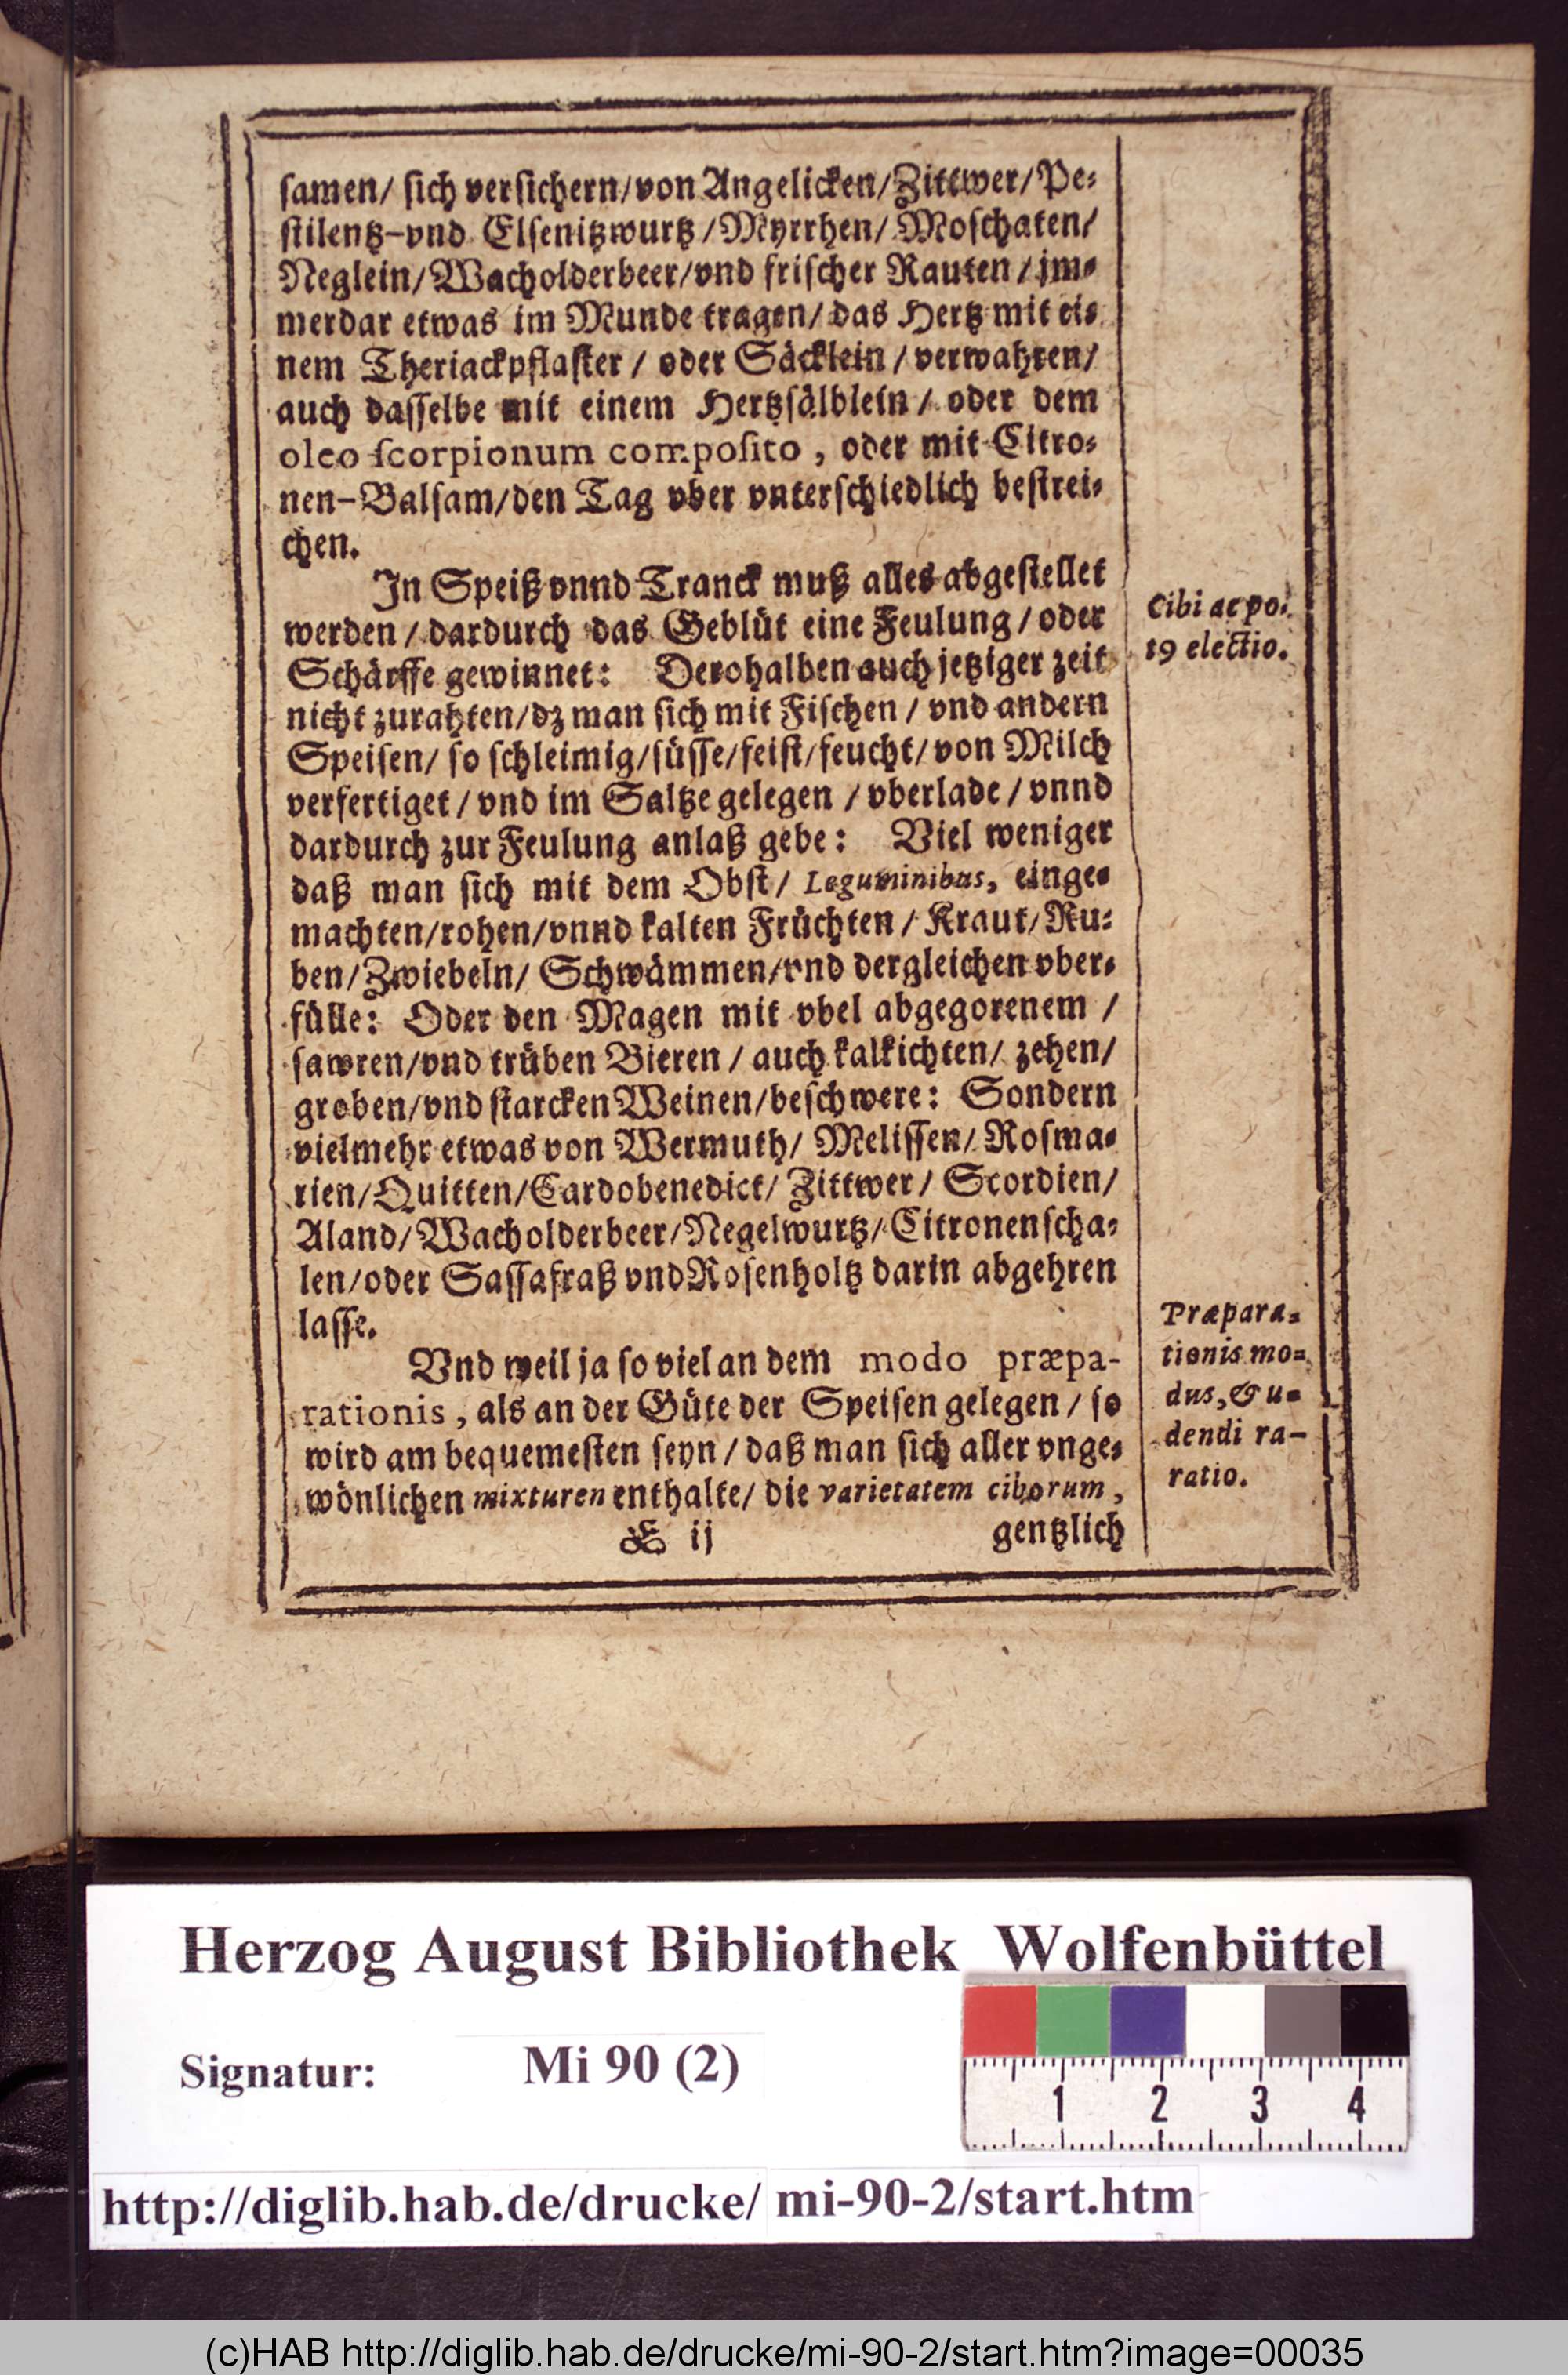 ſamen/ ſich verſichern/von Angelicken/Zittwer/Pe⸗
ſtilentz-vnd Elſenitzwurtz/Myrrhen/Moſchaten/
Neglein/Wacholderbeer/vnd friſcher Rauten/jm⸗
merdar etwas im Munde tragen/das Hertz mit ei⸗
nem Theriackpflaſter/ oder Säcklein/verwahren/
auch daſſelbe mit einem Hertzſälblein/ oder dem
oleo ſcorpionum compoſito, oder mit Citro⸗
nen-Balſam/den Tag vber vnterſchiedlich beſtrei⸗
chen.
In Speiß vnnd Tranck muß alles abgeſtellet
werden/ dardurch das Geblüt eine Feulung/oder
Schärffe gewinnet: Derohalben auch jetziger zeit
nicht zurahten/dz man ſich mit Fiſchen/ vnd andern
Speiſen/ ſo ſchleimig/ſüſſe/feiſt/feucht/von Milch
verfertiget/vnd im Saltze gelegen/vberlade/vnnd
dardurch zur Feulung anlaß gebe: Viel weniger
daß man ſich mit dem Obſt/ Leguminibus, einge⸗
machten/rohen/vnnd kalten Früchten/Kraut/Ru⸗
ben/Zwiebeln/ Schwämmen/vnd dergleichen vber⸗
fülle: Oder den Magen mit vbel abgegorenem/
ſawren/vnd trüben Bieren/auch kalkichten/ zehen/
groben/vnd ſtarcken Weinen/beſchwere: Sondern
vielmehr etwas von Wermuth/ Meliſſen/Roſma⸗
rien/Quitten/Cardobenedict/ Zittwer/ Scordien/
Aland/Wacholderbeer/Negelwurtz/Citronenſcha⸗
len/oder Saſſafraß vnd Roſenholtz darin abgehren
laſſe.
Vnd weil ja ſo viel an dem modo præpa-
rationis, als an der Güte der Speiſen gelegen/ ſo
wird am bequemeſten ſeyn/ daß man ſich aller vnge⸗
wönlichen mixturen enthalte/ die varietatem ciborum,
E ij gentzlich
Cibi ac po⸗
t9 electio.
Præpara⸗
tionis mo⸗
dus, & u⸗
dendi ra-
ratio.
Herzog August Bibliothek Wolfenbüttel
Signatur: Mi 90 (2)
1 2 3 4
http://diglib.hab.de/drucke/ mi-90-2/start.htm
(c)HAB http://diglib.hab.de/drucke/mi-90-2/start.htm?image=00035